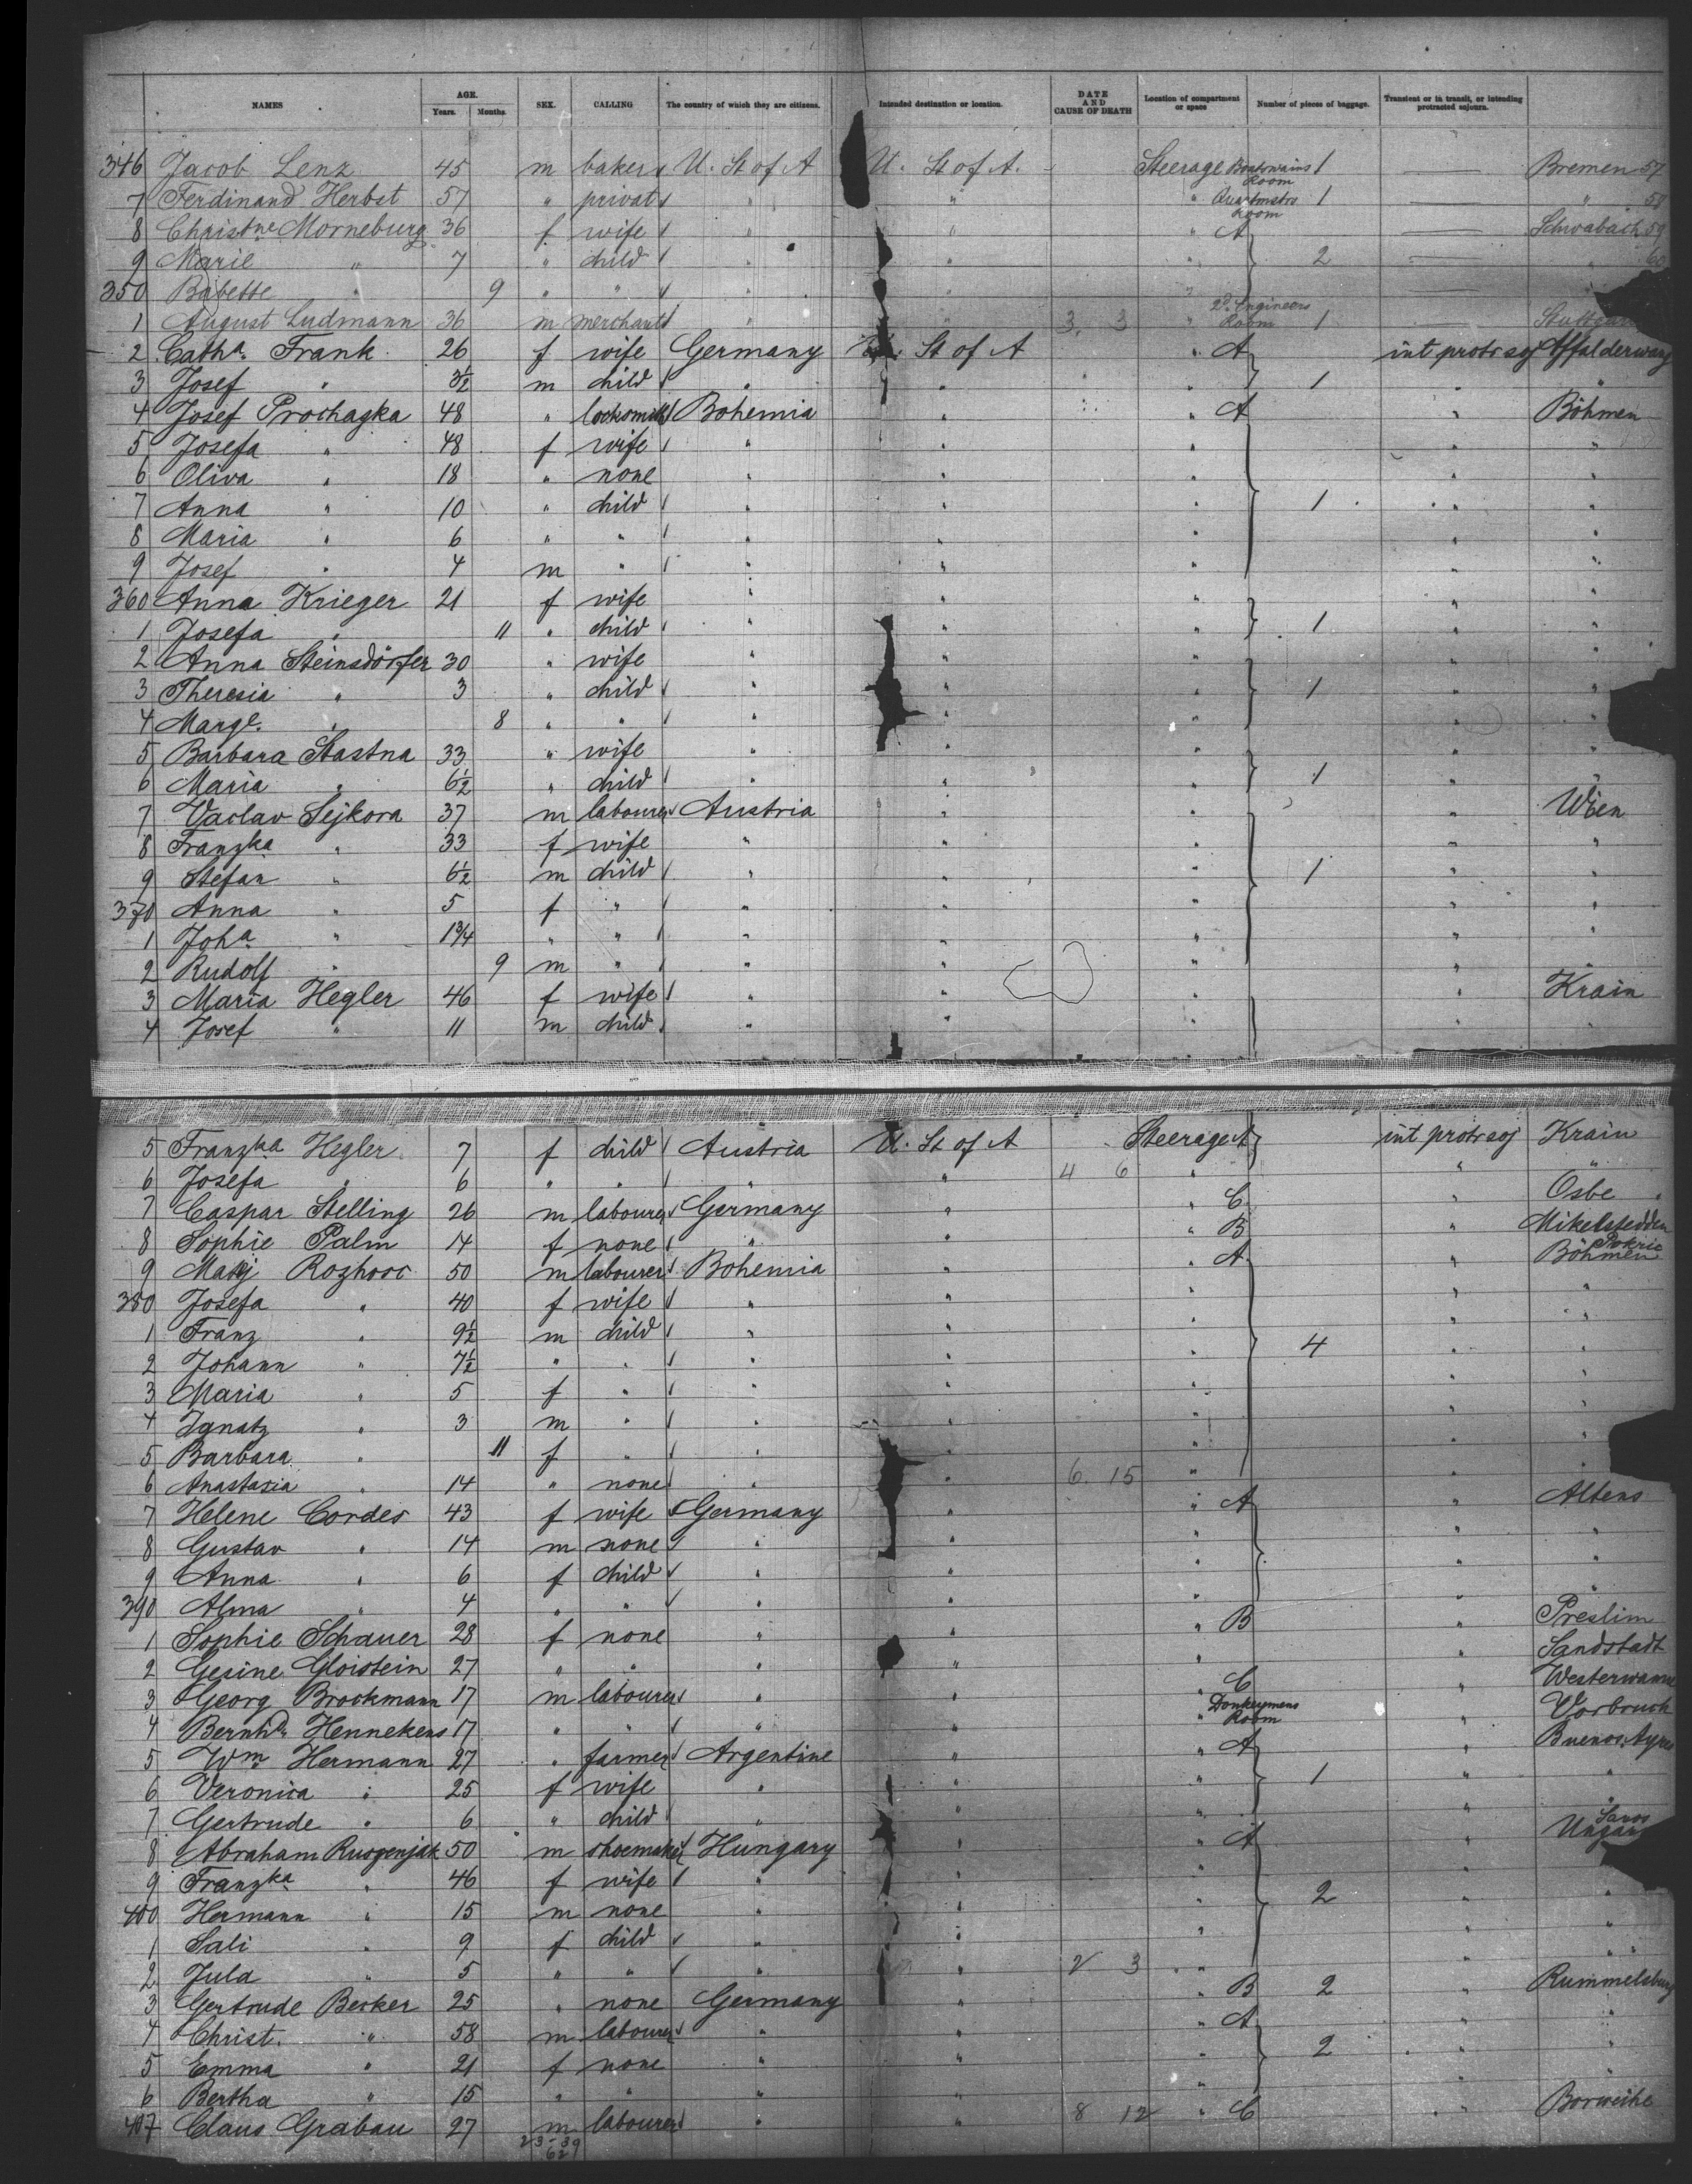 NAMES AGE. Years. Months. SEX. CALLING The country of which they are citizens. Intended destination or location. DATE AND CAUSE OF DEATH Location of compartment or space Number of pieces of baggage. Transient or in transit, or intending protracted sojourn.
346 Jacob Lenz 45 m baker U. St of A U. St of A. Steerage Boatswains Room 1 — Bremen 57
7 Ferdinand Herbst 57 " privat " " " Quartmstrs Room 1 — " 58
8 Christne Morneburg 36 f wife " " " A — Schwabach 59
9 Marie " 7 " child " " " 2 — " 60
350 Babette " 9 " " " " " —
1 August Ludmann 36 m merchant " " 3. 3 " 2d. Engineers Room 1 —
2 Catha. Frank 26 f wife Germany St of A " A int protr soj Offalderwang
3 Josef " 3½ m child " " " 1 " "
4 Josef Prochazka 48 " locksmith Bohemia " " A " Böhmen
5 Josefa " 48 f wife " " " " "
6 Oliva " 18 " none " " " " "
7 Anna " 10 " child " " " 1 " "
8 Maria " 6 " " " " " " "
9 Josef " 4 m " " " " " "
360 Anna Krieger 21 f wife " " " " "
1 Josefa " 11 " child " " " 1 " "
2 Anna Steinsdörfer 30 " wife " " " " "
3 Theresia " 3 " child " " " 1 " "
4 Marge. " 8 " " " " " "
5 Barbara Stastna 33 " wife " " " " "
6 Maria " 6½ " child " " " 1 " "
7 Vaclav Sejkora 37 m labourer Austria " " " Wien
8 Franzka " 33 f wife " " " " "
9 Stefan " 6½ m child " " " 1 " "
370 Anna " 5 f " " " " " "
1 Joha " 1¾ " " " " " " "
2 Rudolf " 9 m " " " " " "
3 Maria Hegler 46 f wife " " " " Krain
4 Josef " 11 m child " " " " "
5 Franzka Hegler 7 f child Austria U. St of A Steerage A int protr soj Krain
6 Josefa " 6 " " " " 4 6 " " "
7 Caspar Stelling 26 m labourer Germany " " C " Osbe
8 Sophie Palm 14 f none " " " B " Mikelstedden
9 Matij Rozhoc 50 m labourer Bohemia " " A " Böhmen
380 Josefa " 40 f wife " " " " "
1 Franz " 9½ m child " " " 4 " "
2 Johann " 7½ " " " " " " "
3 Maria " 5 f " " " " " "
4 Ignatz " 3 m " " " " " "
5 Barbara " 11 f " " " " " "
6 Anastasia " 14 " none " " 6. 15 " " "
7 Helene Cordes 43 f wife Germany " " A " Altens
8 Gustav " 14 m none " " " " "
9 Anna " 6 f child " " " " "
390 Alma " 4 " " " " " " "
1 Sophie Schauer 28 f none " " " B " Preslim
2 Gesine Gloistein 27 " " " " " " Sandstadt
3 Georg Brockmann 17 m labourer " " " C "
4 Bernhd. Hennekens 17 " " " " " Donkeymens Room " Vorbruch
5 Wm Hermann 27 " farmer Argentine " " A " Buenos Ayres
6 Veronica " 25 f wife " " " 1 " "
7 Gertrude " 6 " child " " " " "
8 Abraham Ruszenjak 50 m shoemaker Hungary " " A Saros Ungarn
9 Franzka " 46 f wife " " "
400 Hermann " 15 m none " " " 2 " "
1 Sali " 9 f child " " " " "
2 Jula " 5 " " " " 2 3 " " "
3 Gertrude Becker 25 " none Germany " " B 2 " Rummelsburg
4 Christ. " 58 m labourer " " " A " "
5 Emma " 21 f none " " " 2 " "
6 Bertha " 15 " " " " " " "
407 Claus Grabau 27 m labourer " " 8 12 " C " Borweihe
23-39
62